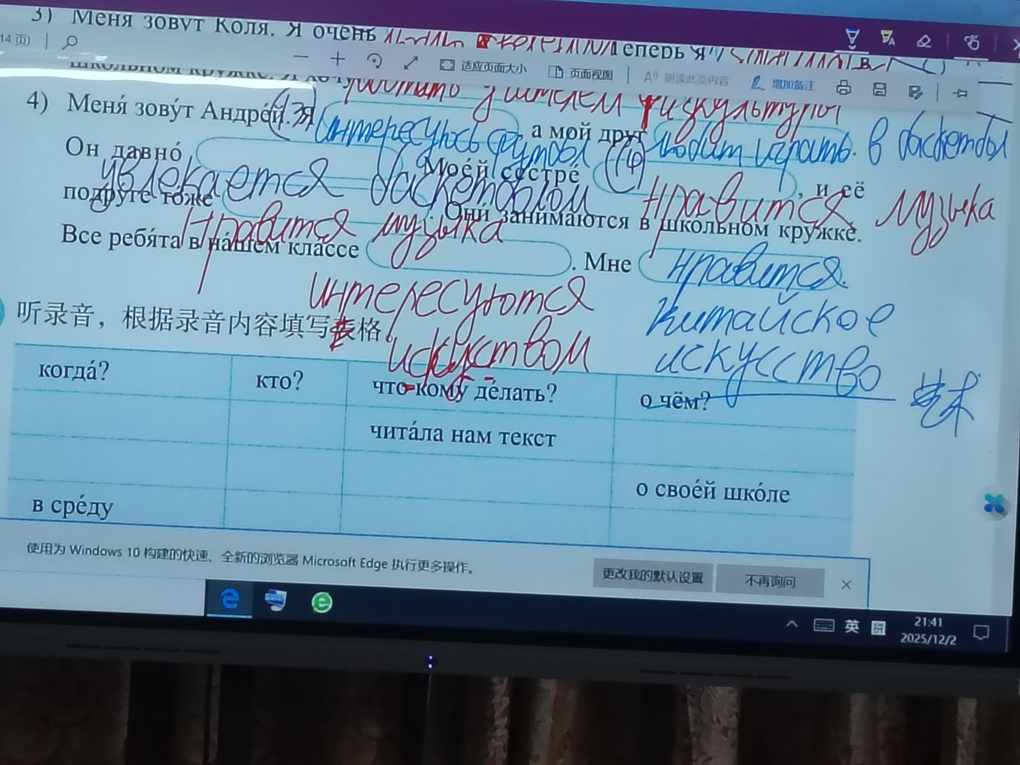 3) Меня зовут Коля. Я очень люблю Теперь я
14 页) 适应页面大小 页面视图 朗读此页内容 增加备注
школьном кружке. Я хочу работать учителем физкультуры
4) Меня́ зову́т Андре́й. Я интересуюсь а мой друг любит играть в баскетбол
Он давно́ увлекается баскетболом Мое́й сестре́ нравится музыка, и её
подру́ге то́же нравится музыка. Они́ занима́ются в шко́льном кружке́.
Все ребя́та в на́шем кла́ссе интересуются искуством. Мне нравится
китайское
искусство
艺术
听录音，根据录音内容填写表格。
когда́? кто? что кому́ де́лать? о чём?
чита́ла нам текст
о свое́й шко́ле
в сре́ду
使用为 Windows 10 构建的快速、全新的浏览器 Microsoft Edge 执行更多操作。 更改我的默认设置 不再询问
英 拼 21:41
2025/12/2